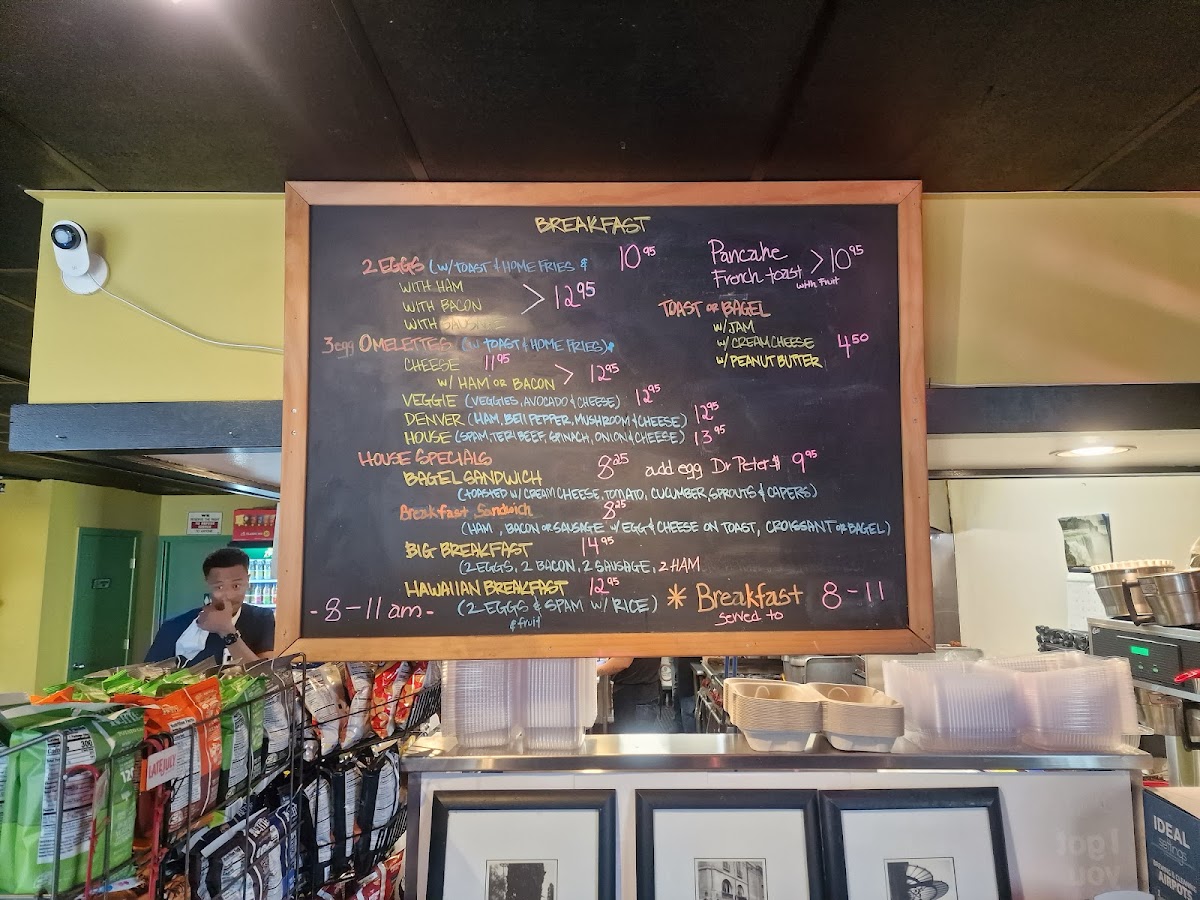 BREAKFAST
2 EGGS (W/ TOAST & HOME FRIES & 10 95
WITH HAM
WITH BACON > 12 95
WITH SAUSAGE
3 egg OMELETTES (W/ TOAST & HOME FRIES)
CHEESE 11 95
W/ HAM OR BACON > 12 95
VEGGIE (VEGGIES, AVOCADO & CHEESE) 12 95
DENVER (HAM, BELL PEPPER, MUSHROOM & CHEESE) 12 95
HOUSE (SPAM, TERI BEEF, SPINACH, ONION & CHEESE) 13 95
HOUSE SPECIALS
BAGEL SANDWICH 8 25 add egg Dr Peter $ 9 95
(TOASTED W/ CREAM CHEESE, TOMATO, CUCUMBER, SPROUTS & CAPERS)
Breakfast Sandwich 8 25
(HAM, BACON OR SAUSAGE W/ EGG & CHEESE ON TOAST, CROISSANT OR BAGEL)
BIG BREAKFAST 14 95
(2 EGGS, 2 BACON, 2 SAUSAGE, 2 HAM
HAWAIIAN BREAKFAST 12 95
(2 EGGS & SPAM W/ RICE)
& fruit
- 8-11 am -
Pancake
French toast > 10 95
with Fruit
TOAST OR BAGEL
W/ JAM
W/ CREAM CHEESE 4 50
W/ PEANUT BUTTER
* Breakfast 8-11
served to
LATE JULY
IDEAL
settings
AIRPOTS
I got
you